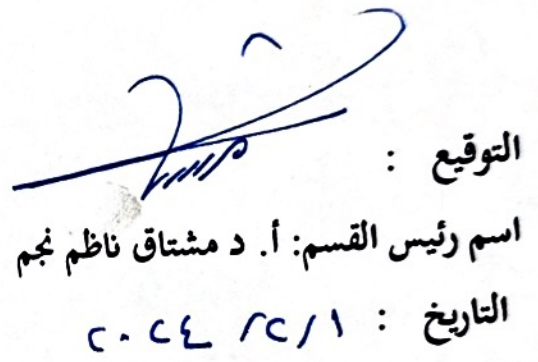 التوقيع :
اسم رئيس القسم: أ. د مشتاق ناظم نجم
التاريخ : ١ /٢/ ٢٠٢٤